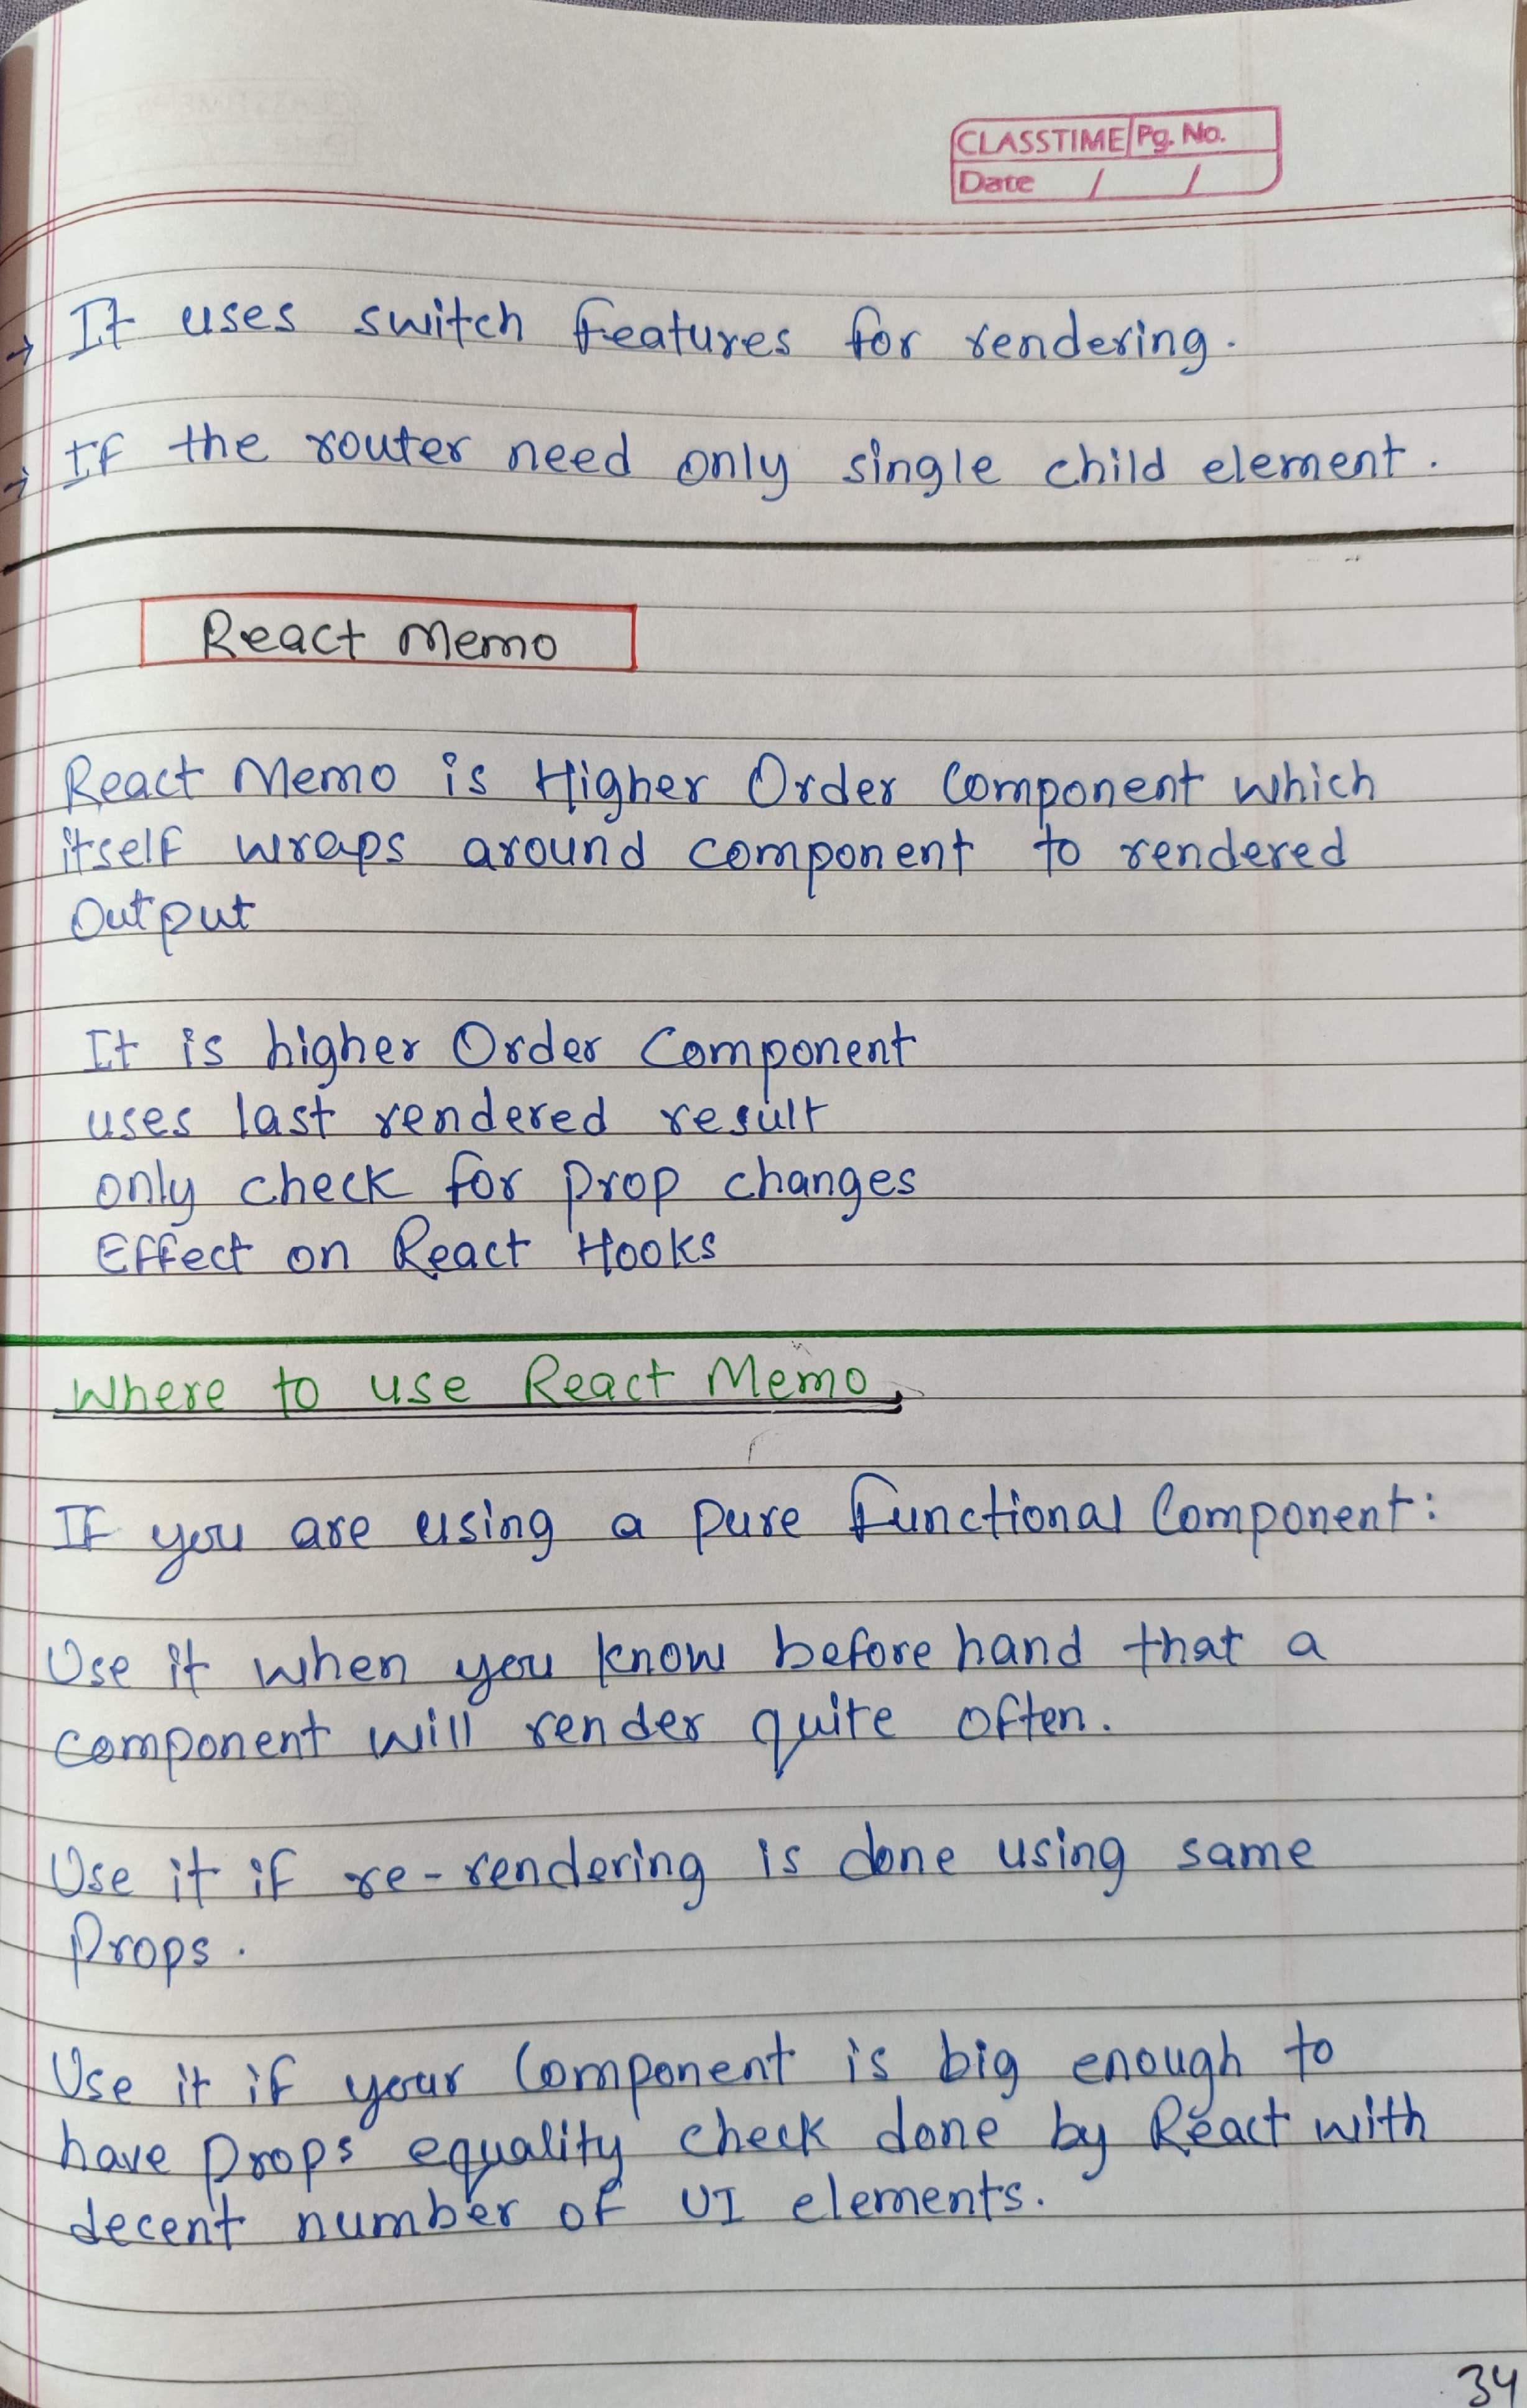 CLASSTIME Pg. No.
Date / /
→ It uses switch features for rendering.
→ If the router need only single child element.
React Memo
React Memo is Higher Order Component which
itself wraps around component to rendered
Output
It is higher Order Component
uses last rendered result
only check for prop changes
Effect on React Hooks
Where to use React Memo
If you are using a pure functional Component:
Use it when you know before hand that a
component will render quite often.
Use it if re-rendering is done using same
Props.
Use it if your Component is big enough to
have props equality check done by React with
decent number of UI elements.
34